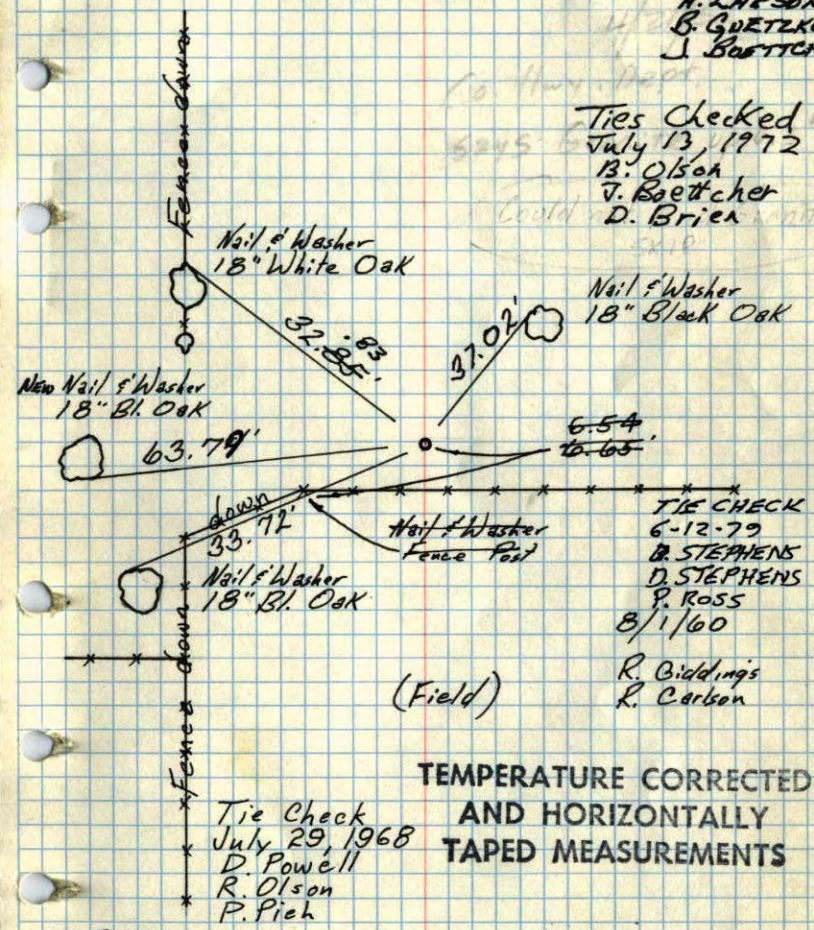 B. GUETZK
Co. Hwy. Dept.
says
Could
SKIP
Ties Checked
July 13, 1972
B. Olson
J. Boettcher
D. Brien
Fence down
Nail & Washer
18" White Oak
32.85'
.83
37.02'
Nail & Washer
18" Black Oak
NEW Nail & Washer
18" Bl. Oak
63.79'
6.54
6.65'
down
33.72'
Nail & Washer
Fence Post
Nail & Washer
18" Bl. Oak
TIE CHECK
6-12-79
B. STEPHENS
D. STEPHENS
P. ROSS
8/1/60
R. Giddings
R. Carlson
Fence down
(Field)
TEMPERATURE CORRECTED
AND HORIZONTALLY
TAPED MEASUREMENTS
Tie Check
July 29, 1968
D. Powell
R. Olson
P. Pieh